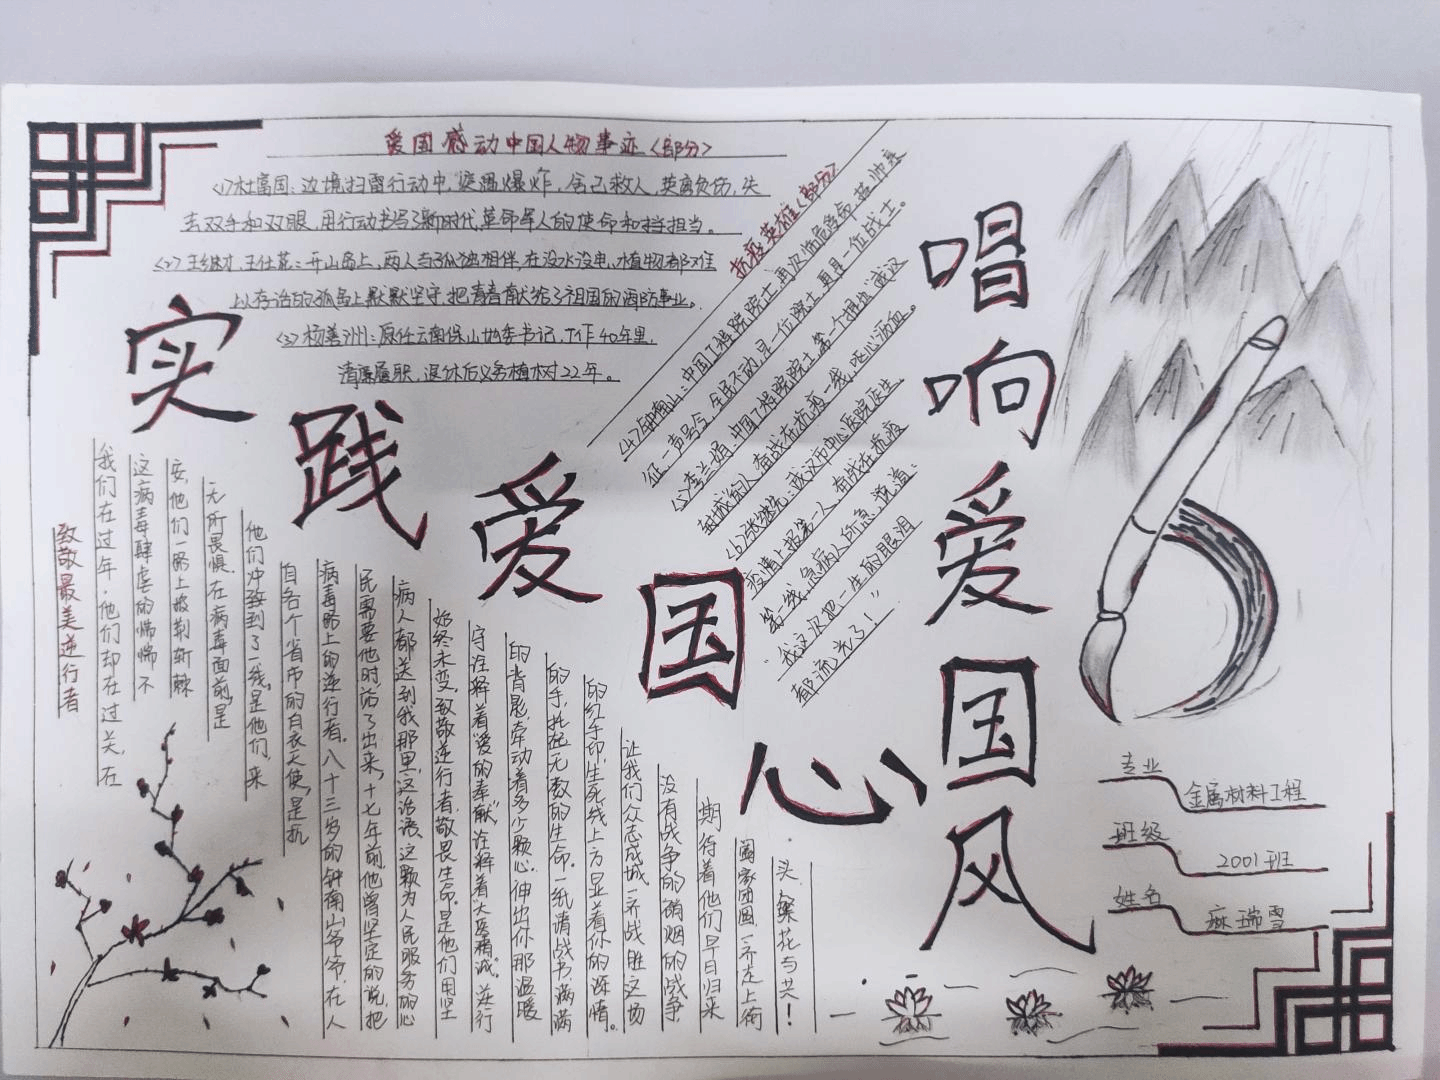 爱国感动中国人物事迹<部分>
<1>杜富国：边境扫雷行动中，遭遇爆炸，舍己救人，英勇负伤，失
去双手和双眼，用行动书写了新时代革命军人的使命和担当。
<2>王继才、王仕花：开山岛上，两人与孤独相伴，在没水没电、植物都难
以存活的孤岛上默默坚守，把青春献给了祖国的海防事业。
<3>杨善洲：原任云南保山地委书记，工作40年里，
清廉履职，退休后义务植树22年。
抗疫英雄<部分>
<4>钟南山：中国工程院院士，再次临危受命，挂帅出
征一声号令，全民不动，是一位院士，更是一位战士。
<5>李兰娟：中国工程院院士，第一个提出"武汉
封城"的人，奋战在抗疫一线，呕心沥血。
<6>张继先：武汉市中心医院医生
疫情上报第一人，奋战在抗疫
第一线，急病人所急，说道：
"我这次把一生的眼泪
都流光了！"
实践爱国心
唱响爱国风
致敬最美逆行者
我们在过年，他们却在过关，在
这病毒肆虐的惴惴不
安，他们一路上披荆斩棘
无所畏惧，在病毒面前，是
他们冲致到了一线，是他们，来
自各个省市的白衣天使，是抗
病毒路上的逆行者。八十三岁的钟南山爷爷，在人
民需要他时站了出来，十七年前，他曾坚定的说，把
病人都送到我那里，这治话，这颗为人民服务的心
始终未变，致敬逆行者，敬畏生命。是他们用坚
守诠释着"爱的奉献"，诠释着"大医精诚"。逆行
的背影，牵动着多少颗心，伸出你那温暖
的手，托起无数的生命，一纸请战书，满满
的红手印，生死线上方显着你的深情。
让我们众志成城，一齐战胜这场
没有战争的硝烟的战争，
期待着他们早日归来
阖家团圆，一齐走上街
头，繁花与共！
专业 金属材料工程
班级 2001班
姓名 麻瑞雪